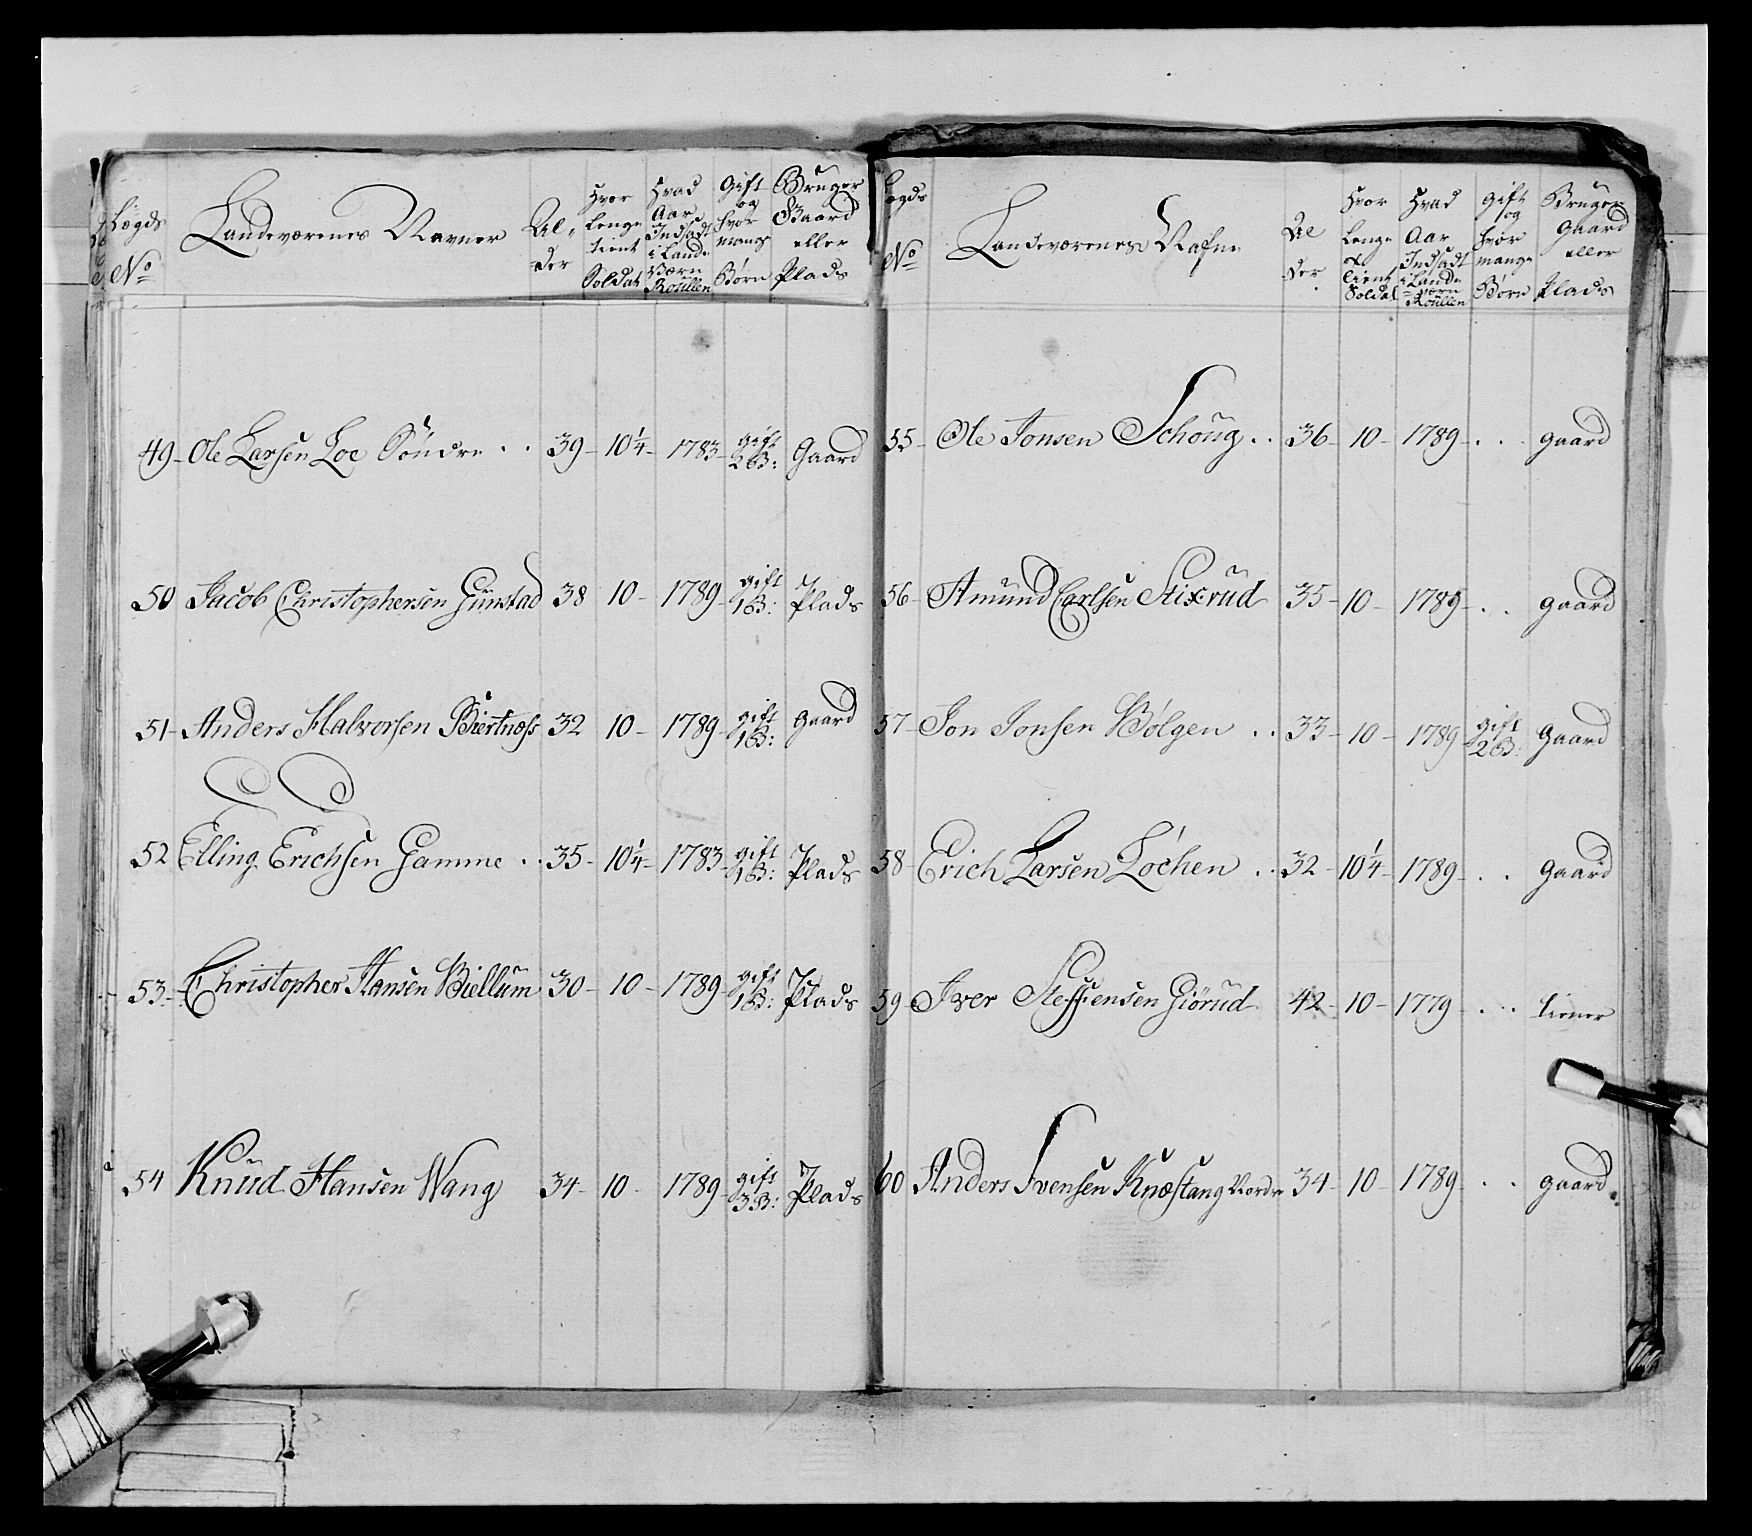 Lægds No
Landeværenes Navner
Al,der
Hvor lenge tient Soldat
Hvad Aar Indsadt i Lande Værn Roullen
Gift og hvor mange Børn
Bruger Gaard eller Plads
49 - Ole Larsen Loe Söndre . . 39 - 10¼ - 1783 - gift 2 B: Gaard
50 Jacob Christophersen Gunstad 38 10 - 1789 - gift 1 B: Plads
51 - Anders Halvorsen Biertnæss 32 10 - 1789 - gift 1 B: gaard
52 Elling Erichsen Gamme . . 35 - 10¼ - 1783 - gift 1 B: Plads
53 - Christopher Hansen Biellum 30 - 10 - 1789 - gift 1 B: Plads
54 Knud Hansen Wang 34 - 10 - 1789 - gift 3 B: Plads
Lægds No
Landeværenes Nafne
Al der
Hvor lenge tient Soldat
Hvad Aar Indsadt i Lande = værn Roullen
gift og hvor mange Börn
Bruger Gaard eller Plads
55 - Ole Jonsen Schoug . . 36 - 10 - 1789 - . . . gaard
56 - Amund Carlsen Stixrud 35 - 10 - 1789 - . . gaard
57 - Jon Jonsen Bölgen . . 33 - 10 - 1789 gift 2 B: Gaard
58 - Erich Larsen Löchen . . 32 - 10¼ - 1789 - . . Gaard
59 - Iver Steffensen Giörud 42 - 10 - 1779 - . . . tiener
60 Anders Svensen Knæstang Nordre 34 - 10 - 1789 - . . gaard